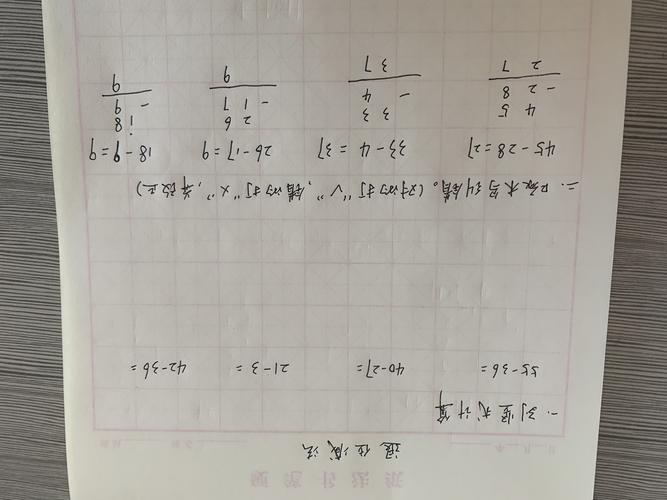 硬笔书法纸
退位减法
一.列竖式计算
55-36= 40-27= 21-3= 42-36=
二.啄木鸟纠错。(对的打"√",错的打"×",并改正)
45-28=27 33-4=37 26-17=9 18-9=9
4 5 3 3 2 6 1 8
- 2 8 - 4 - 1 7 - 9
2 7 3 7 9 9